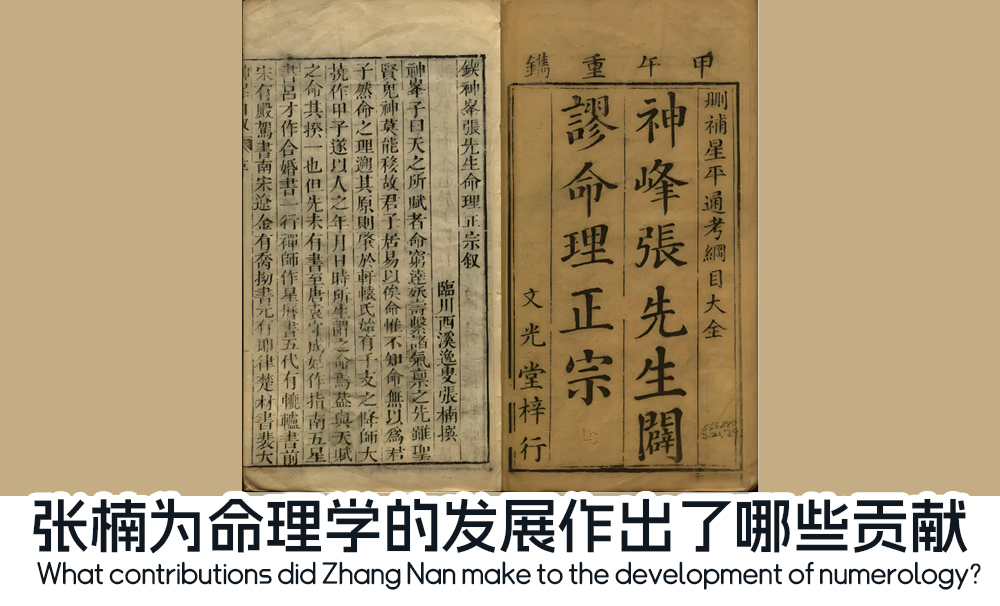 甲午重鐫
刪補星平通考綱目大全
神峰張先生闢
謬命理正宗
文光堂梓行
鍥神峯張先生命理正宗叙
臨川西溪逸叟張楠撰
神峯子曰天之所賦者命窮達殀壽繫諸氣稟之先雖聖
賢鬼神莫能移故君子居易以俟命惟不知命無以爲君
子然命之理遡其原則肇於軒轅氏始有干支之降師大
撓作甲子遂以人之年月日時所生謂之命焉蓋與天賦
之命其揆一也但先未有書至唐袁守成始作指南五星
書呂才作合婚書一行禪師作星曆書五代有轆轤書前
宋有殿駕書南宋遼金有喬拗書元有耶律楚材書裴大
张楠为命理学的发展作出了哪些贡献
What contributions did Zhang Nan make to the development of numerology?